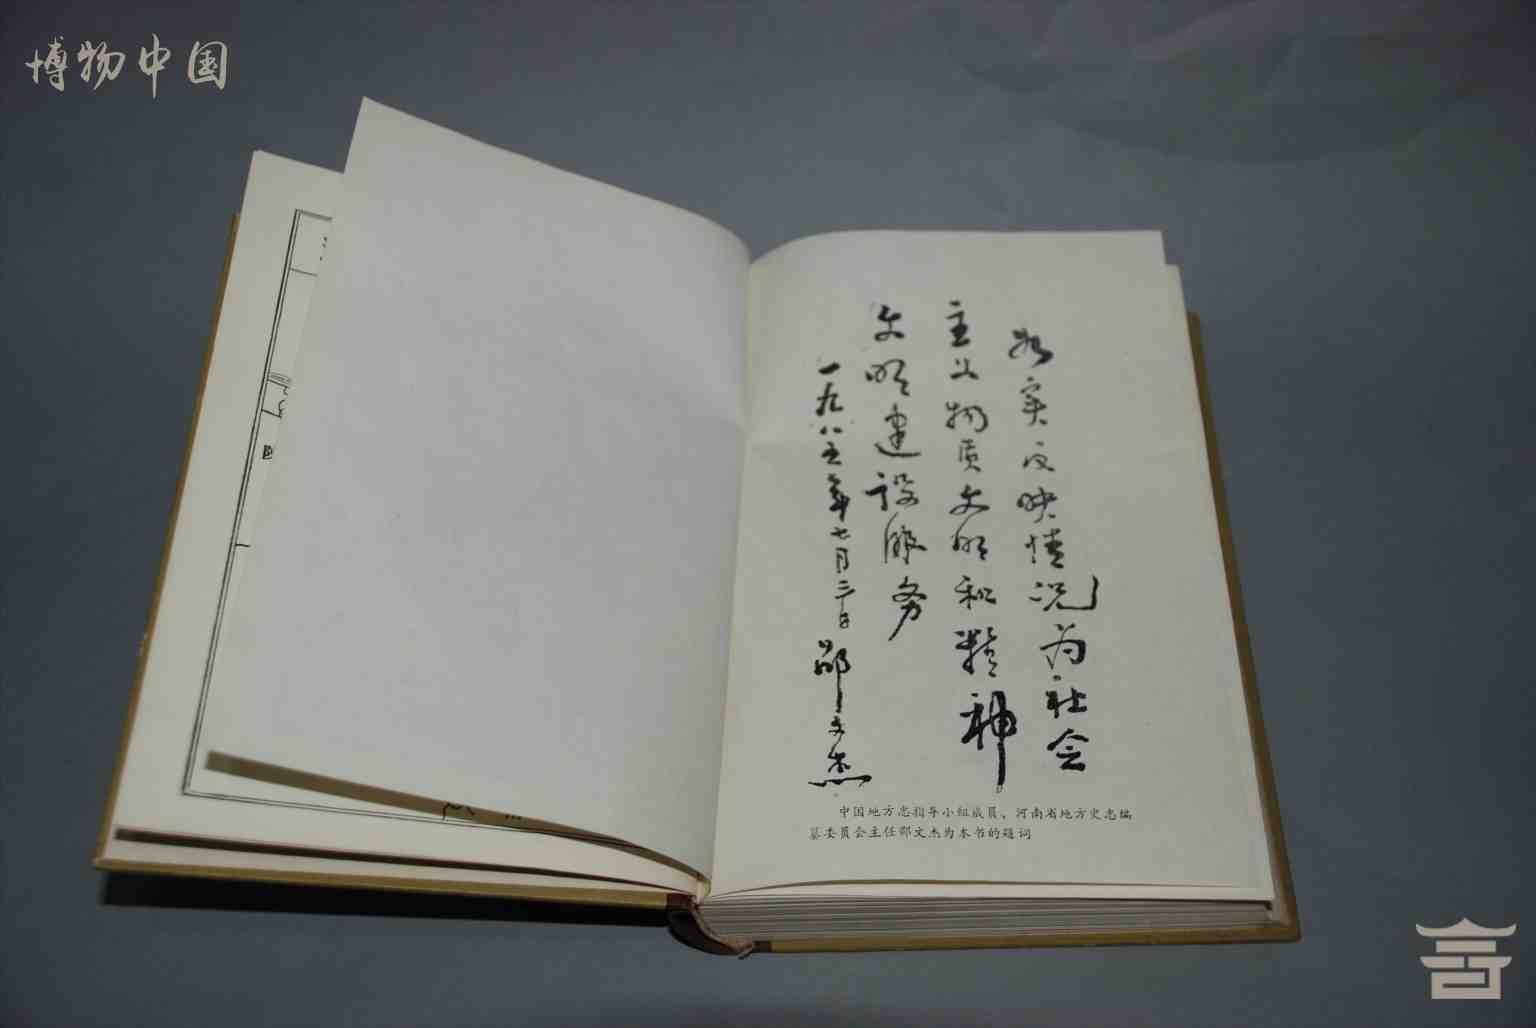 博物中国
如实反映情况为社会
主义物质文明和精神
文明建设服务
一九八五年七月二十日
邵文杰
中国地方志指导小组成员、河南省地方史志编
纂委员会主任邵文杰为本书的题词